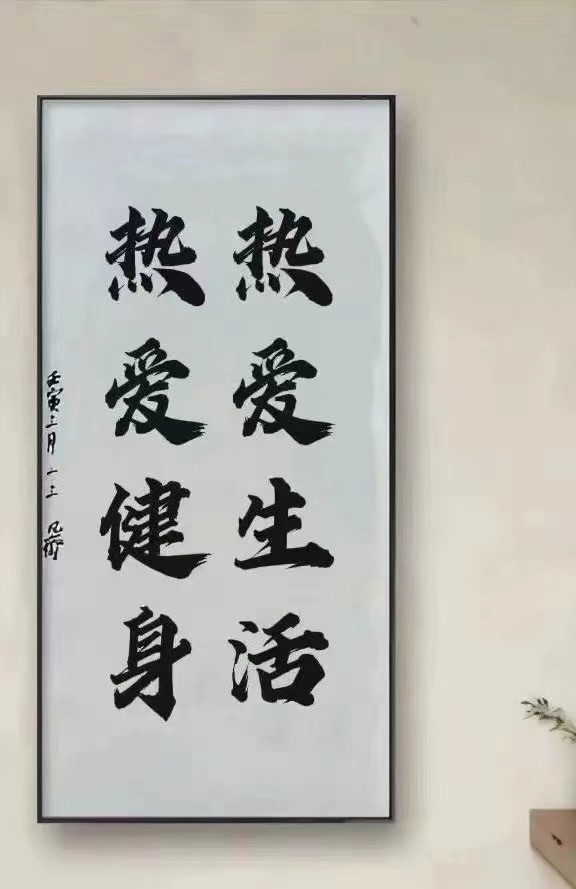 热爱生活
热爱健身
壬寅三月一三